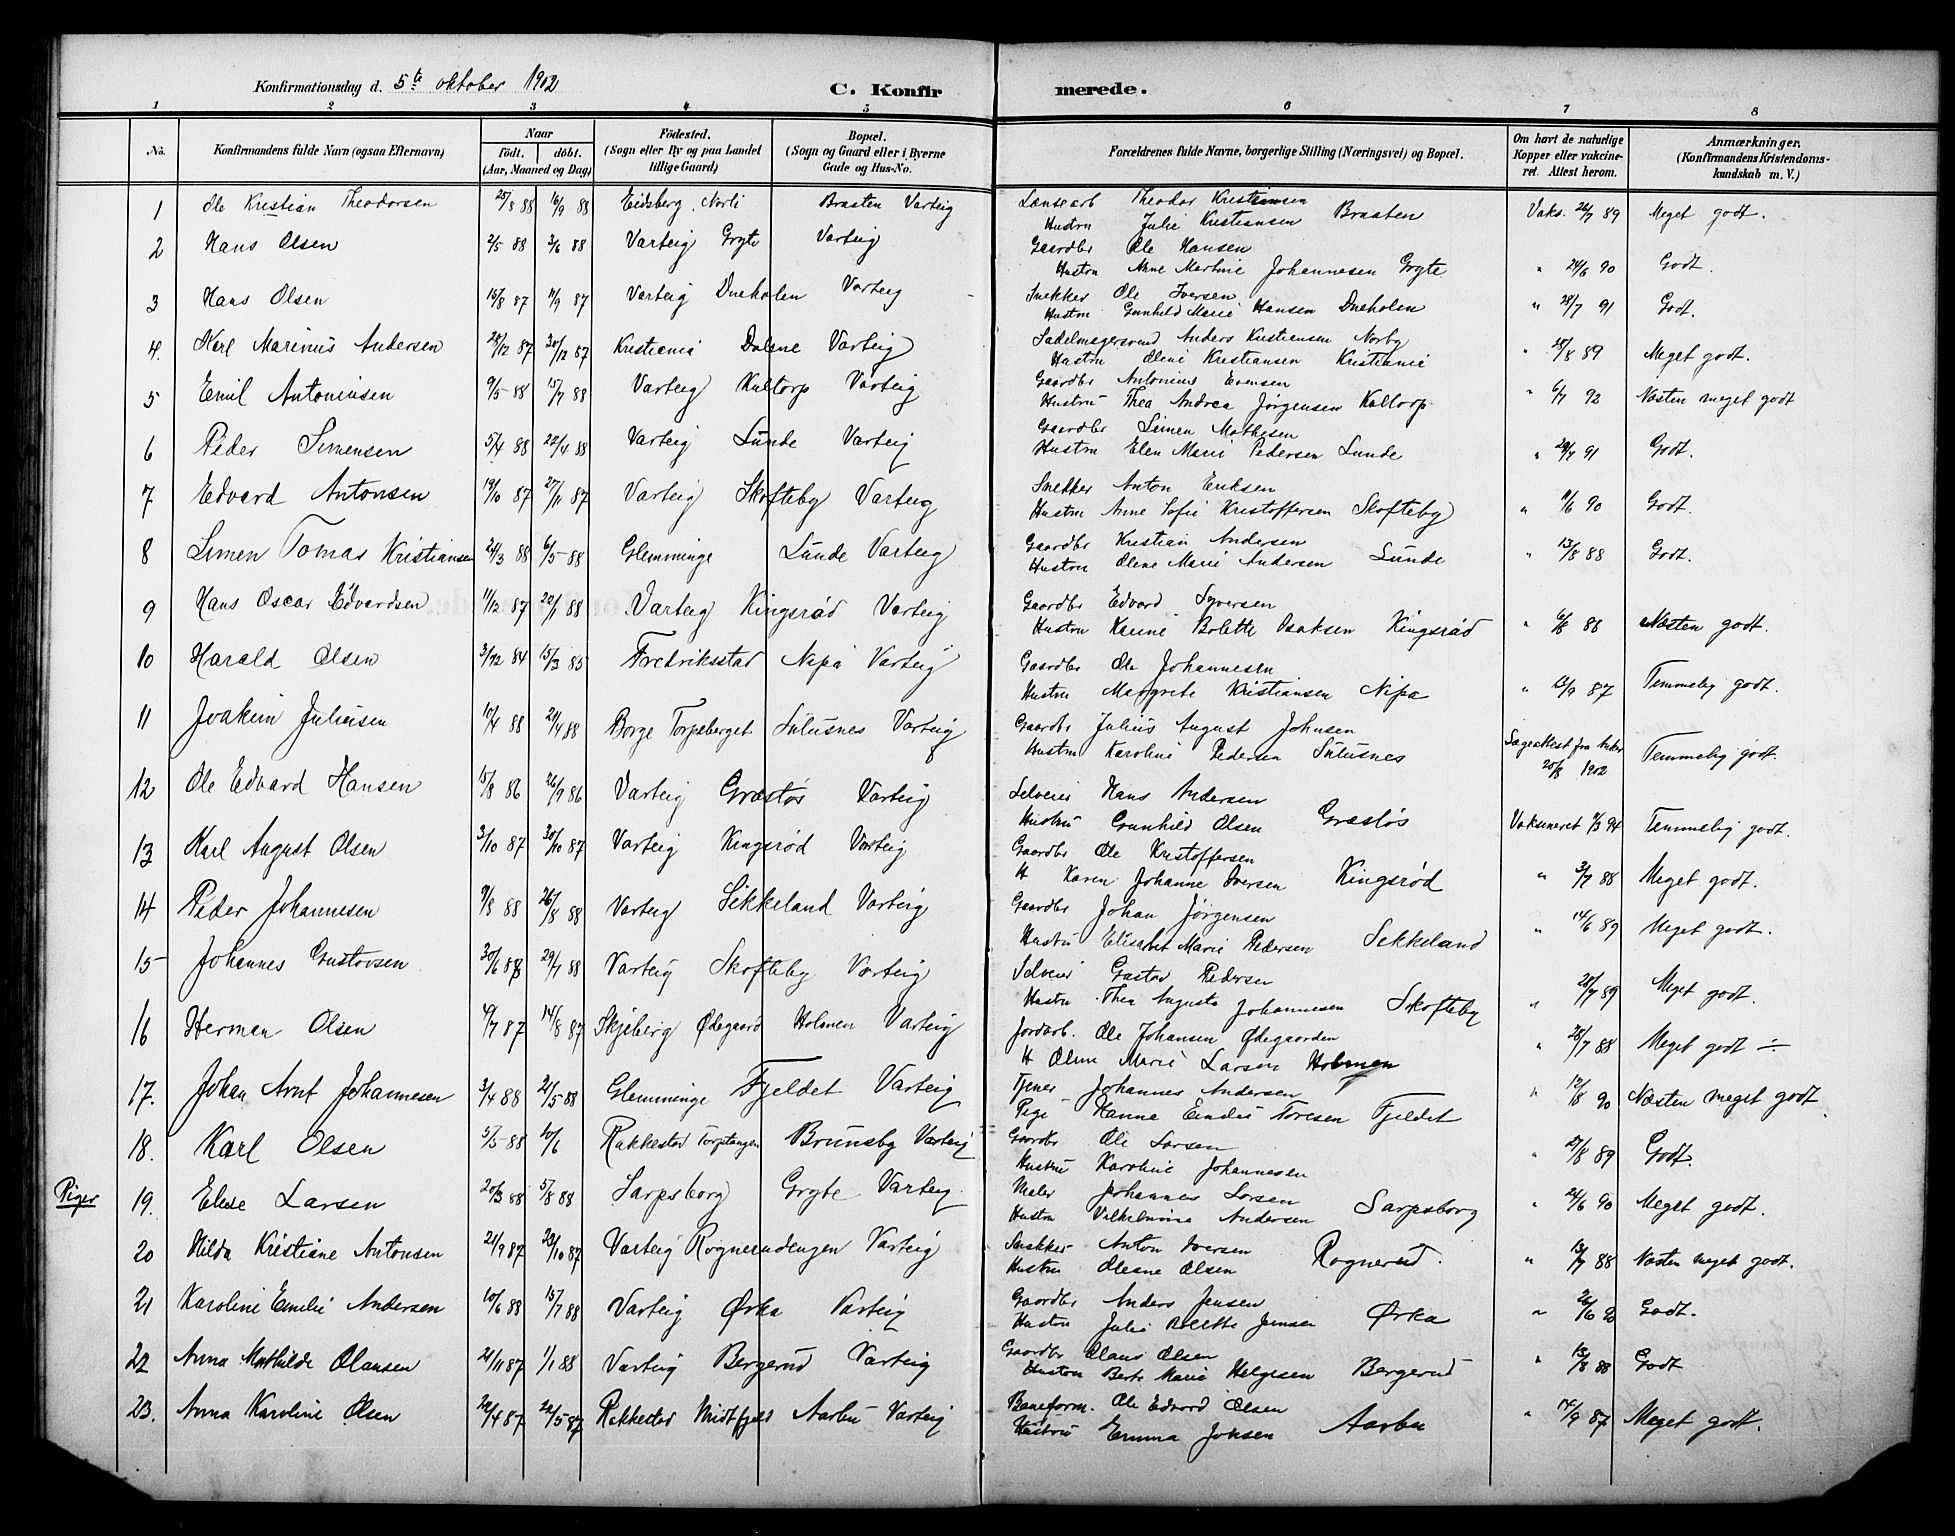 Konfirmationsdag d. 5te oktober 1902
C. Konfirmerede.
1 2 3 4 5 6 7 8
No. Konfirmandens fulde Navn (ogsaa Efternavn) Naar født. døbt. (Aar, Maaned og Dag) Fødested. (Sogn eller By og paa Landet tillige Gaard) Bopæl. (Sogn og Gaard eller i Byerne Gade og Hus-No. Forældrenes fulde Navne, borgerlige Stilling (Næringsvei) og Bopæl. Om havt de naturlige Kopper eller vakcineret. Attest herom. Anmærkninger. (Konfirmandens Kristendomskundskab m. V.)
1 Ole Kristian Theodorsen 25/8 88 16/9 88 Eidsberg Norli Braaten Varteig Theodor Kristiansen
Hustru Julie Kristiansen Braaten Vaks. 26/7 89 Meget godt.
2 Hans Olsen 2/5 88 3/6 88 Varteig Gryte Varteig Gaardbr Ole Hansen
Hustru Anne Martine Johannesen Gryte " 24/6 90 Godt.
3 Hans Olsen 15/8 87 11/9 87 Varteig Dueholen Varteig Snekker Ole Iversen
Hustru Gunhild Marie Hansen Dueholen " 28/7 91 Godt.
4. Karl Marinus Andersen 28/12 87 30/12 87 Kristiania Dalene Varteig Sadelmagersvend Anders Kristiansen Norby
Hustru Oline Kristiansen Kristiania " 28/8 89 Meget godt.
5 Emil Antoniusen 9/5 88 15/7 88 Varteig Kultorp Varteig Gaardbr Antonius Evensen
Hustru Thea Andrea Jørgensen Kultorp " 6/7 92 Næsten meget godt
6 Peder Simensen 5/4 88 22/4 88 Varteig Lunde Varteig Gaardbr Simen Mathisen
Hustru Elen Marie Pedersen Lunde " 29/7 91 Godt.
7 Edvard Antonsen 19/10 87 27/11 87 Varteig Skofteby Varteig Snekker Anton Eriksen
Hustru Anne Sofie Kristoffersen Skofteby " 11/6 90 Godt.
8 Simen Tomas Kristiansen 24/3 88 6/5 88 Glemminge Lunde Varteig Gaardbr Kristian Andersen
Hustru Oline Marie Andersen Lunde " 13/8 88 Godt.
9 Hans Oscar Edvardsen 11/12 87 22/1 88 Varteig Kingsrød Varteig Gaardbr Edvard Syversen
Hustru Karine Bolette Isaksen Kingsrød " 6/8 88 Næsten godt.
10 Harald Olsen 3/12 84 15/3 85 Fredriksstad Nipa Varteig Gaardbr Ole Johannesen
Hustru Margrete Kristiansen Nipa " 13/9 87 Temmelig godt.
11 Joakim Juliusen 10/4 88 29/4 88 Borge Torpeberget Sulusnes Varteig Gaardbr Julius August Johnsen
Hustru Karoline Pedersen Sulusnes 20/8 1902 Temmelig godt.
12 Ole Edvard Hansen 15/8 86 26/9 86 Varteig Græstøs Varteig Selveier Hans Andersen
Hustru Gunhild Olsen Græstøs Vaksineret 9/3 94 Temmelig godt.
13 Karl August Olsen 3/10 87 30/10 87 Varteig Kingsrød Varteig Gaardbr Ole Kristoffersen
H Karen Johanne Iversen Kingsrød " 3/7 88 Meget godt.
14 Peder Johannesen 9/8 88 26/8 88 Varteig Sikkeland Varteig Gaardbr Johan Jørgensen
Hustru Elisabet Marie Pedersen Sikkeland " 14/6 89 Meget godt.
15 Johannes Gustavsen 30/6 88 29/7 88 Varteig Skofteby Varteig Selveier Gustav Pedersen
Hustru Thea Augusta Johannesen Skofteby " 20/7 89 Meget godt.
16 Herman Olsen 9/7 87 14/8 87 Skjeberg Ødegaard Holmen Varteig Jordarb. Ole Johansen Ødegaarden
H Oline Marie Larsen Holmen " 28/7 88 Meget godt ÷
17. Johan Arnt Johannesen 3/4 88 21/5 88 Glemminge Fjeldet Varteig Tjener Johannes Andersen
Pige Hanna Toresen Fjeldet " 12/8 90 Næsten meget godt
18. Karl Olsen 5/5 88 10/6 Rakkestad Torptangen Brunsby Varteig Gaardbr Ole Larsen
Hustru Karoline Johannesen " 27/8 89 Godt.
Piger 19. Elise Larsen 20/3 88 5/8 88 Sarpsborg Gryte Varteig Maler Johannes Larsen
Hustru Vilhelmine Andersen Sarpsborg " 24/6 90 Meget godt.
20 Hilda Kristiane Antonsen 21/9 87 23/10 87 Varteig Rognerudengen Varteig Snekker Anton Iversen
Hustru Oleane Olsen Rognerud. " 13/7 88 Næsten meget godt.
21 Karoline Emilie Andersen 10/6 88 15/7 88 Varteig Ørka Varteig Gaardbr Anders Jensen
Hustru Julie Bolette Jensen Ørka " 26/6 90 Godt.
22 Anna Mathilde Olausen 21/11 87 1/1 88 Varteig Bergerud Varteig Gaardbr Olaus Olsen
Hustru Berte Marie Helgesen Bergerud " 13/8 88 Godt
23. Anna Karoline Olsen 22/4 87 22/5 87 Rakkestad Midtfjeld Aarbu Varteig Baneform. Ole Edvard Olsen
Hustru Emma Johsen Aarbu " 14/9 87 Meget godt.